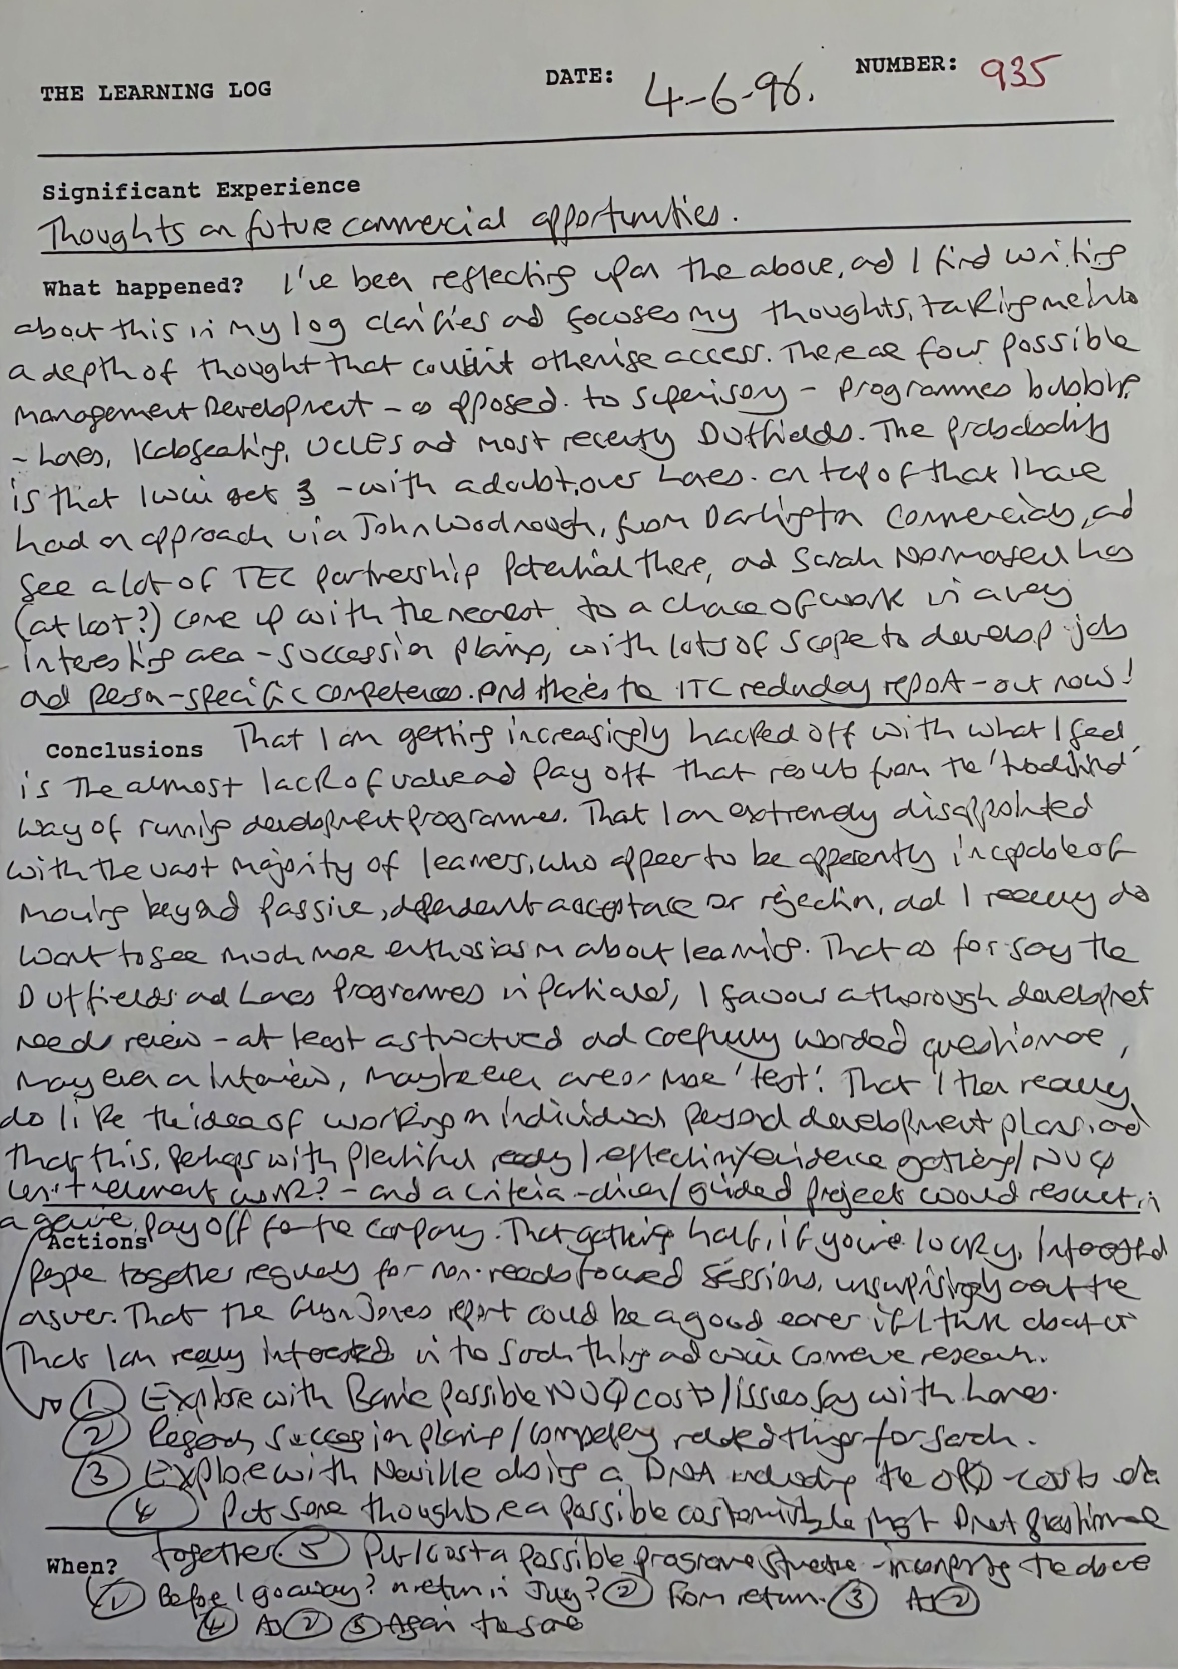 THE LEARNING LOG DATE: 4-6-96. NUMBER: 935
Significant Experience
Thoughts on future commercial opportunities.
What happened? I've been reflecting upon the above, ad I find writing
about this in my log clarifies ad focuses my thoughts, taking me into
a depth of thought that couldn't otherwise access. There are four possible
Management Development - as opposed to supervisory - programmes bubbling
- UCLES ad most recently Duffields. The probability
is that I will get 3 - with a doubt over. On top of that I have
had an approach via John Woodnough, from Darlington Commercials, ad
see a lot of TEC partnership potential there, ad Sarah has
(at last?) come up with the nearest to a chance of work in a very
interesting area - succession planning, with lots of scope to develop job
ad person-specific competences. And there's the ITC redundancy report - out now!
Conclusions That I am getting increasingly hacked off with what I feel
is the almost lack of value ad pay off that results from the 'traditional'
way of running development programmes. That I am extremely disappointed
with the vast majority of learners, who appear to be apparently incapable of
moving beyond passive, dependent acceptance or rejection, ad I really do
want to see much more enthusiasm about learning. That as for say the
Duffields ad programmes in particular, I favour a thorough development
needs review - at least a structured ad carefully worded questionnaire,
may even an interview, maybe even one or more 'test'. That I then really
do like the idea of working on individual personal development plans, ad
that this, perhaps with plentiful ready/reflection/evidence gathering/NVQ
unit relevant work? - and a criteria-driven/guided project would result in
a genuine pay off for the company. That gathering half, if you're lucky, interested
Actions
people together regularly for non-needs focused sessions, unsurprisingly isn't the
answer. That the Glyn Jones report could be a good earner if I think about it
That I am really interested in the such thing ad will continue research.
1 Explore with Barrie possible NVQ costs/issues say with
2 Regards succession planning/competency related things for Sarah.
3 Explore with Neville doing a DNA including the OPQ - costs etc
4 Put some thoughts re a possible customisable DNA questionnaire
together 5 Put/cost a possible programme structure - incorporating the above
When?
1 Before I go away? On return in July? 2 From return. 3 As 2
4 As 2 5 Again the same